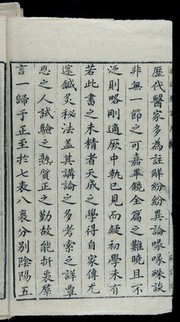 歷代醫家多為註解紛紛異論喙喙殊談
非無一節之可嘉畢竟全篇之難曉且不
泛則略剛適厥中執已見而疑初學未有
若此書之末精者天成之學得自家傳尤
邃鍼灸秘法蓋其講論之多考索之詳蕈
思之人試驗之熟質正之勤故能折衷羣
言一歸于正至於七表八裏分別陰陽五